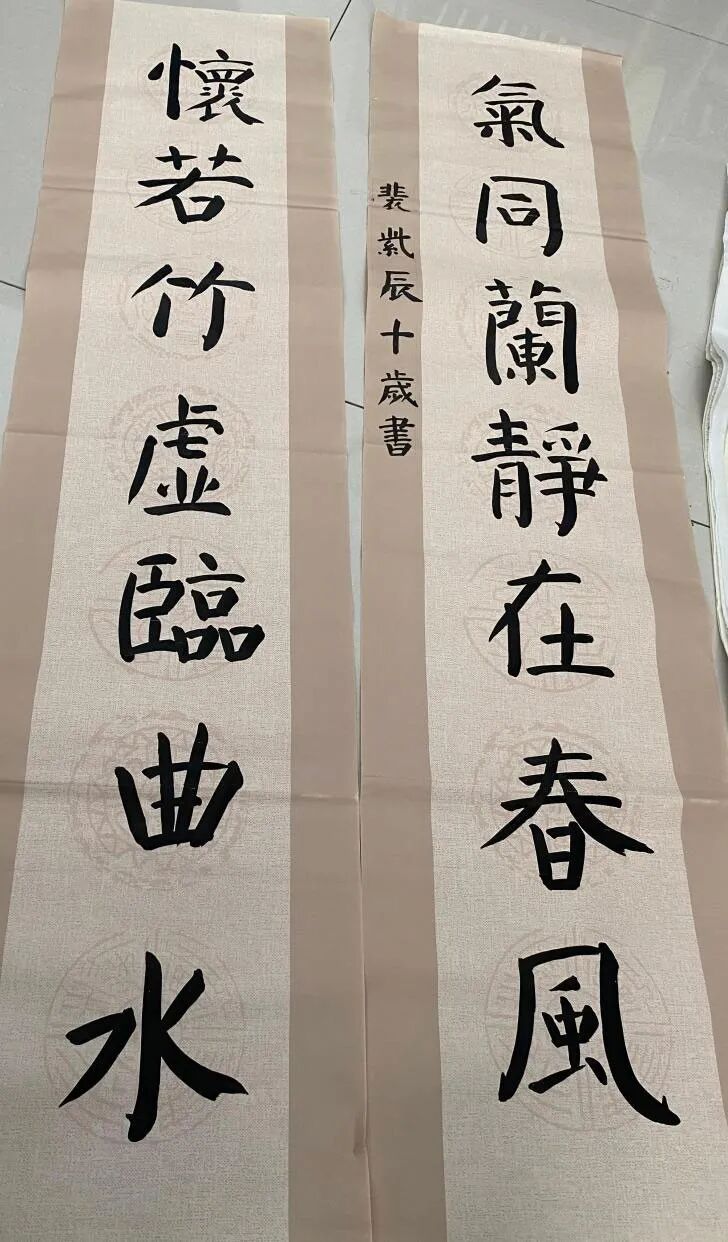 氣同蘭靜在春風
裴紫辰十歲書
懷若竹虛臨曲水